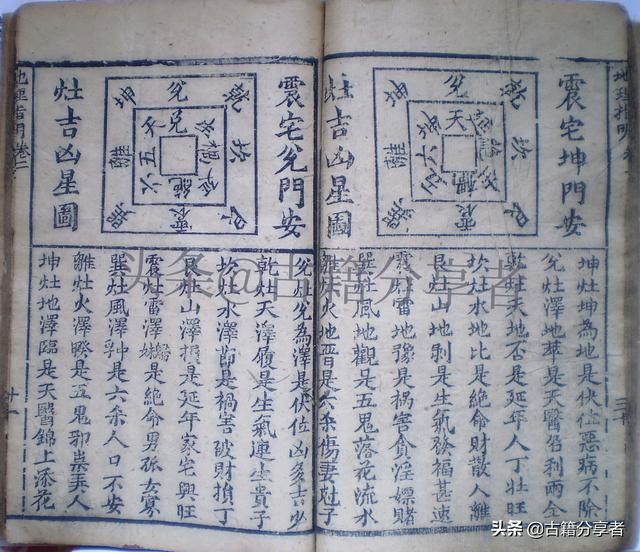 地理指明
震宅坤門安
坤 兌 乾
離 坎
巽 震 艮
天
五 六
灶吉凶星圖
坤灶坤為地是伏位惡病不除
兌灶澤地萃是天醫名利兩全
乾灶天地否是延年人丁壯旺
坎灶水地比是絶命財散人離
艮灶山地剝是生氣發福甚速
震灶雷地豫是禍害貪淫嫖賭
巽灶風地觀是五鬼落花流水
離灶火地晋是六杀傷妻尅子
震宅兌門安
坤 兌 乾
離 坎
巽 震 艮
天 兌
六 五 絶
灶吉凶星圖
兌灶兌為澤是伏位凶多吉少
乾灶天澤履是生氣運生貴子
坎灶水澤節是禍害破財損丁
艮灶山澤損是延年家宅興旺
震灶雷澤歸妹是絶命男孤女寡
巽灶風澤孚中是六杀人口不安
離灶火澤睽是五鬼邪祟弄人
坤灶地澤臨是天醫錦上添花
地理指明卷二
頭条@古籍分享者
头条 @古籍分享者